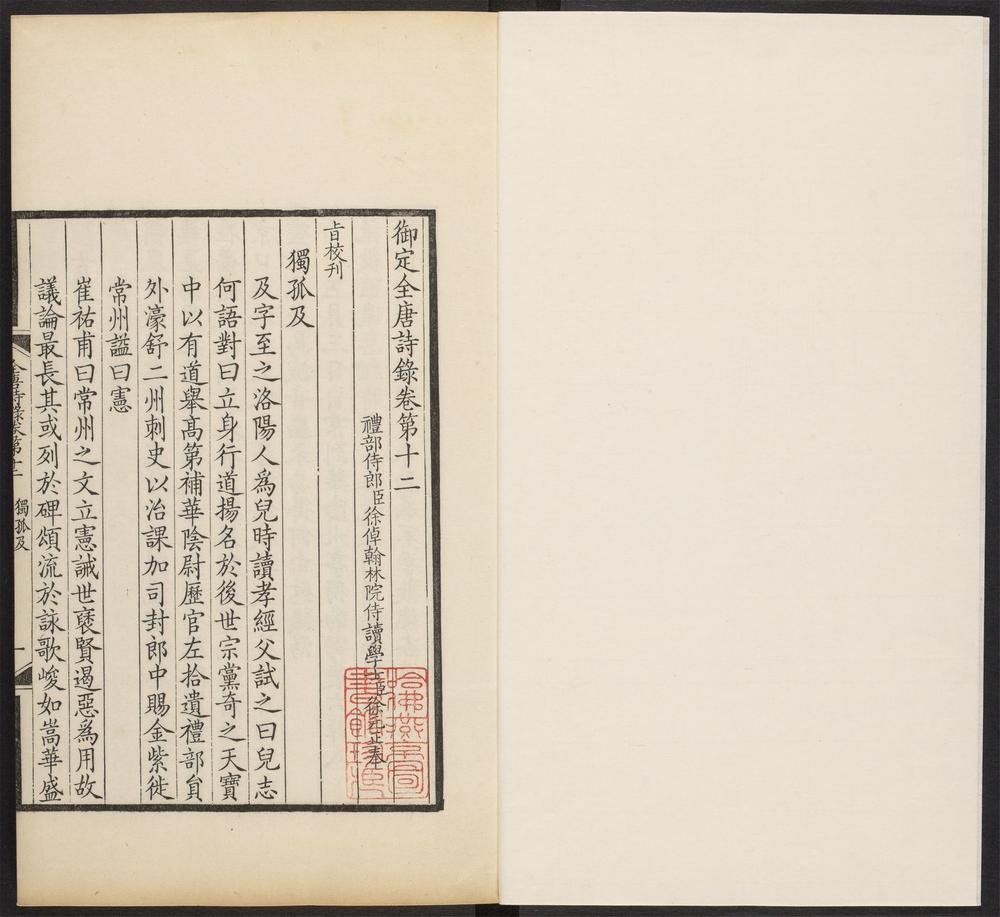 御定全唐詩錄卷第十二
禮部侍郎臣徐倬翰林院侍讀學士臣徐元正奉
旨校刊
獨孤及
及字至之洛陽人爲兒時讀孝經父試之曰兒志
何語對曰立身行道揚名於後世宗黨奇之天寶
中以有道舉高第補華陰尉歷官左拾遺禮部員
外濠舒二州刺史以治課加司封郎中賜金紫徙
常州諡曰憲
崔祐甫曰常州之文立憲誡世褒賢遏惡爲用故
議論最長其或列於碑頌流於詠歌峻如嵩華盛
全唐詩錄卷第十二 獨孤及 一
哈佛燕京圖書館珍藏印